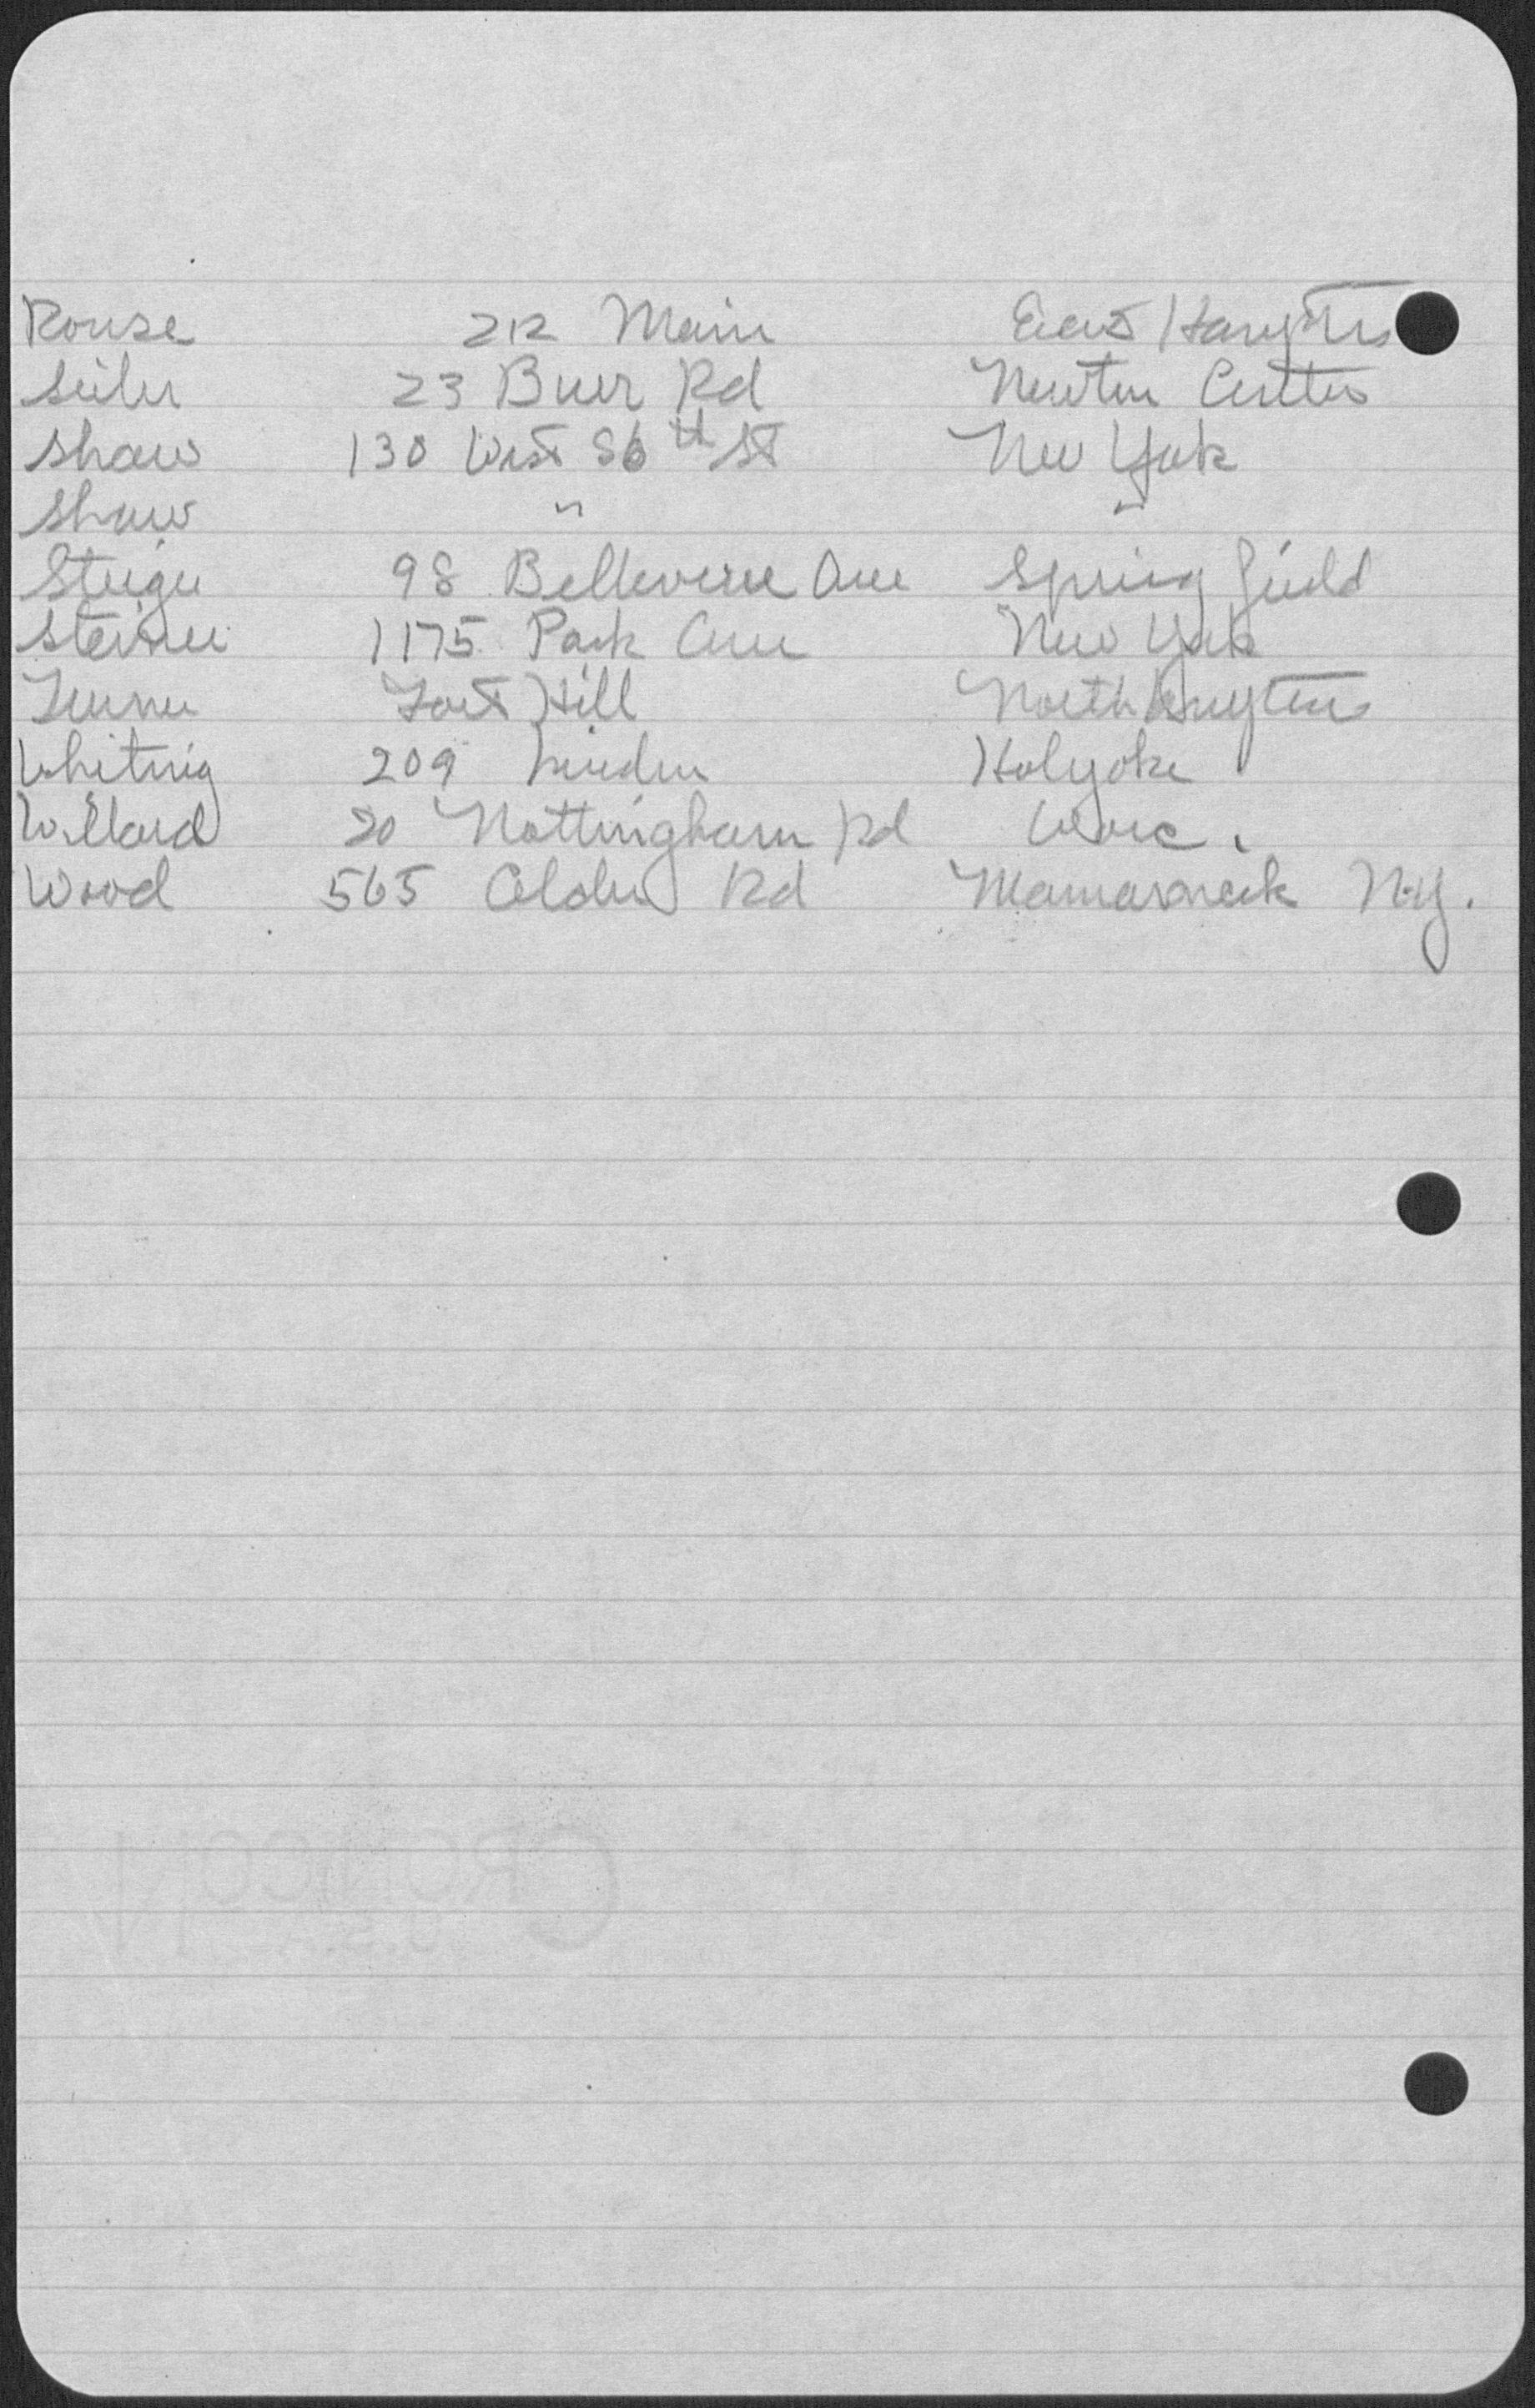 Rouse 212 Main East Hampton
Seiler 23 Burr Rd Newton Center
Shaw 130 West 86th St New York
Shaw " "
Steiger 98 Bellevue Ave Springfield
Steiner 1175 Park Ave New York
Turner Fort Hill Northampton
Whiting 209 Linden Holyoke
Willard 20 Nottingham Rd Worc.
Wood 565 Alda Rd Mamaroneck N.Y.